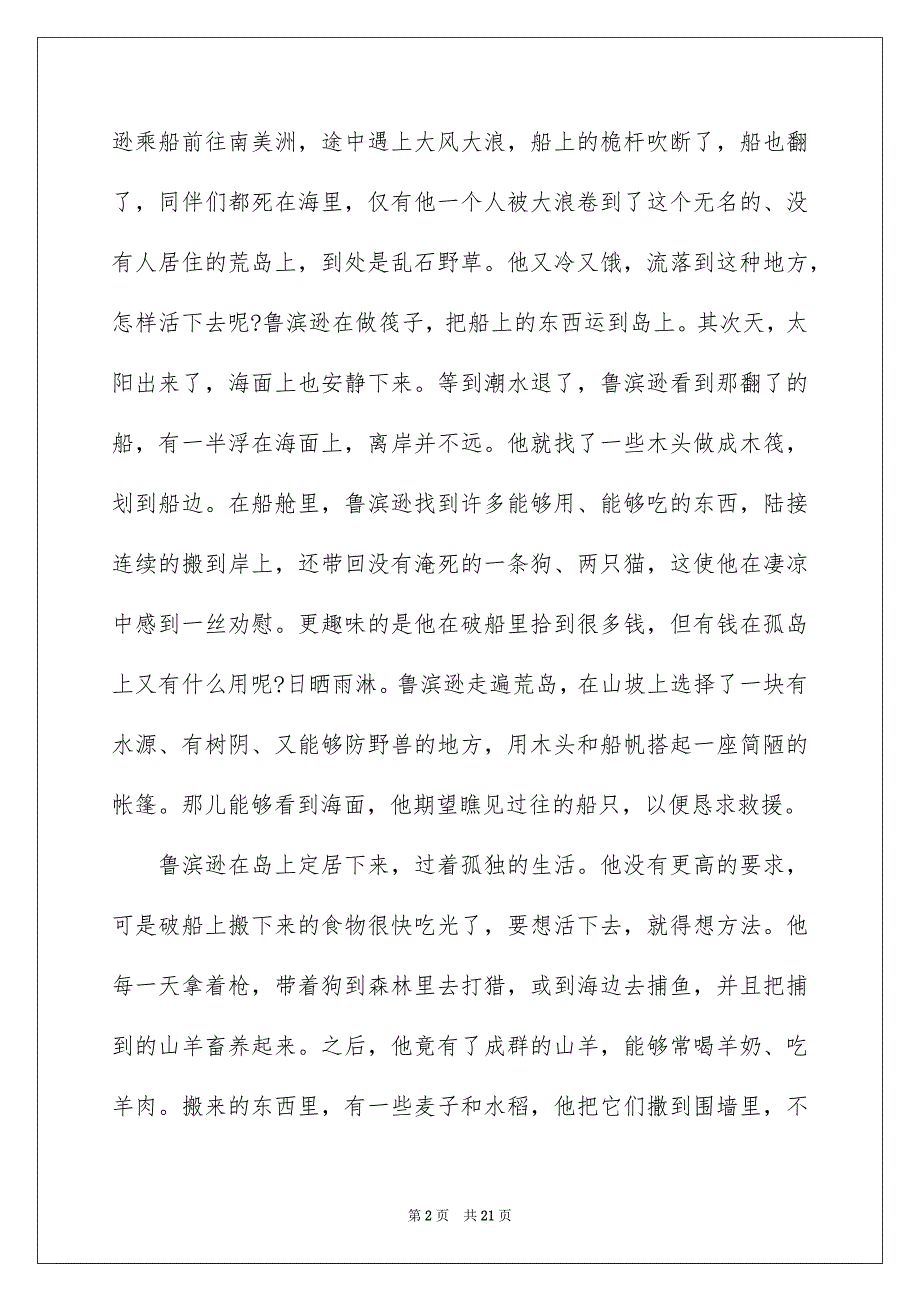 逊乘船前往南美洲，途中遇上大风大浪，船上的桅杆吹断了，船也翻
了，同伴们都死在海里，仅有他一个人被大浪卷到了这个无名的、没
有人居住的荒岛上，到处是乱石野草。他又冷又饿，流落到这种地方，
怎样活下去呢?鲁滨逊在做筏子，把船上的东西运到岛上。其次天，太
阳出来了，海面上也安静下来。等到潮水退了，鲁滨逊看到那翻了的
船，有一半浮在海面上，离岸并不远。他就找了一些木头做成木筏，
划到船边。在船舱里，鲁滨逊找到许多能够用、能够吃的东西，陆接
连续的搬到岸上，还带回没有淹死的一条狗、两只猫，这使他在凄凉
中感到一丝劝慰。更趣味的是他在破船里拾到很多钱，但有钱在孤岛
上又有什么用呢?日晒雨淋。鲁滨逊走遍荒岛，在山坡上选择了一块有
水源、有树阴、又能够防野兽的地方，用木头和船帆搭起一座简陋的
帐篷。那儿能够看到海面，他期望瞧见过往的船只，以便恳求救援。
鲁滨逊在岛上定居下来，过着孤独的生活。他没有更高的要求，
可是破船上搬下来的食物很快吃光了，要想活下去，就得想方法。他
每一天拿着枪，带着狗到森林里去打猎，或到海边去捕鱼，并且把捕
到的山羊畜养起来。之后，他竟有了成群的山羊，能够常喝羊奶、吃
羊肉。搬来的东西里，有一些麦子和水稻，他把它们撒到围墙里，不
第 2 页 共 21 页